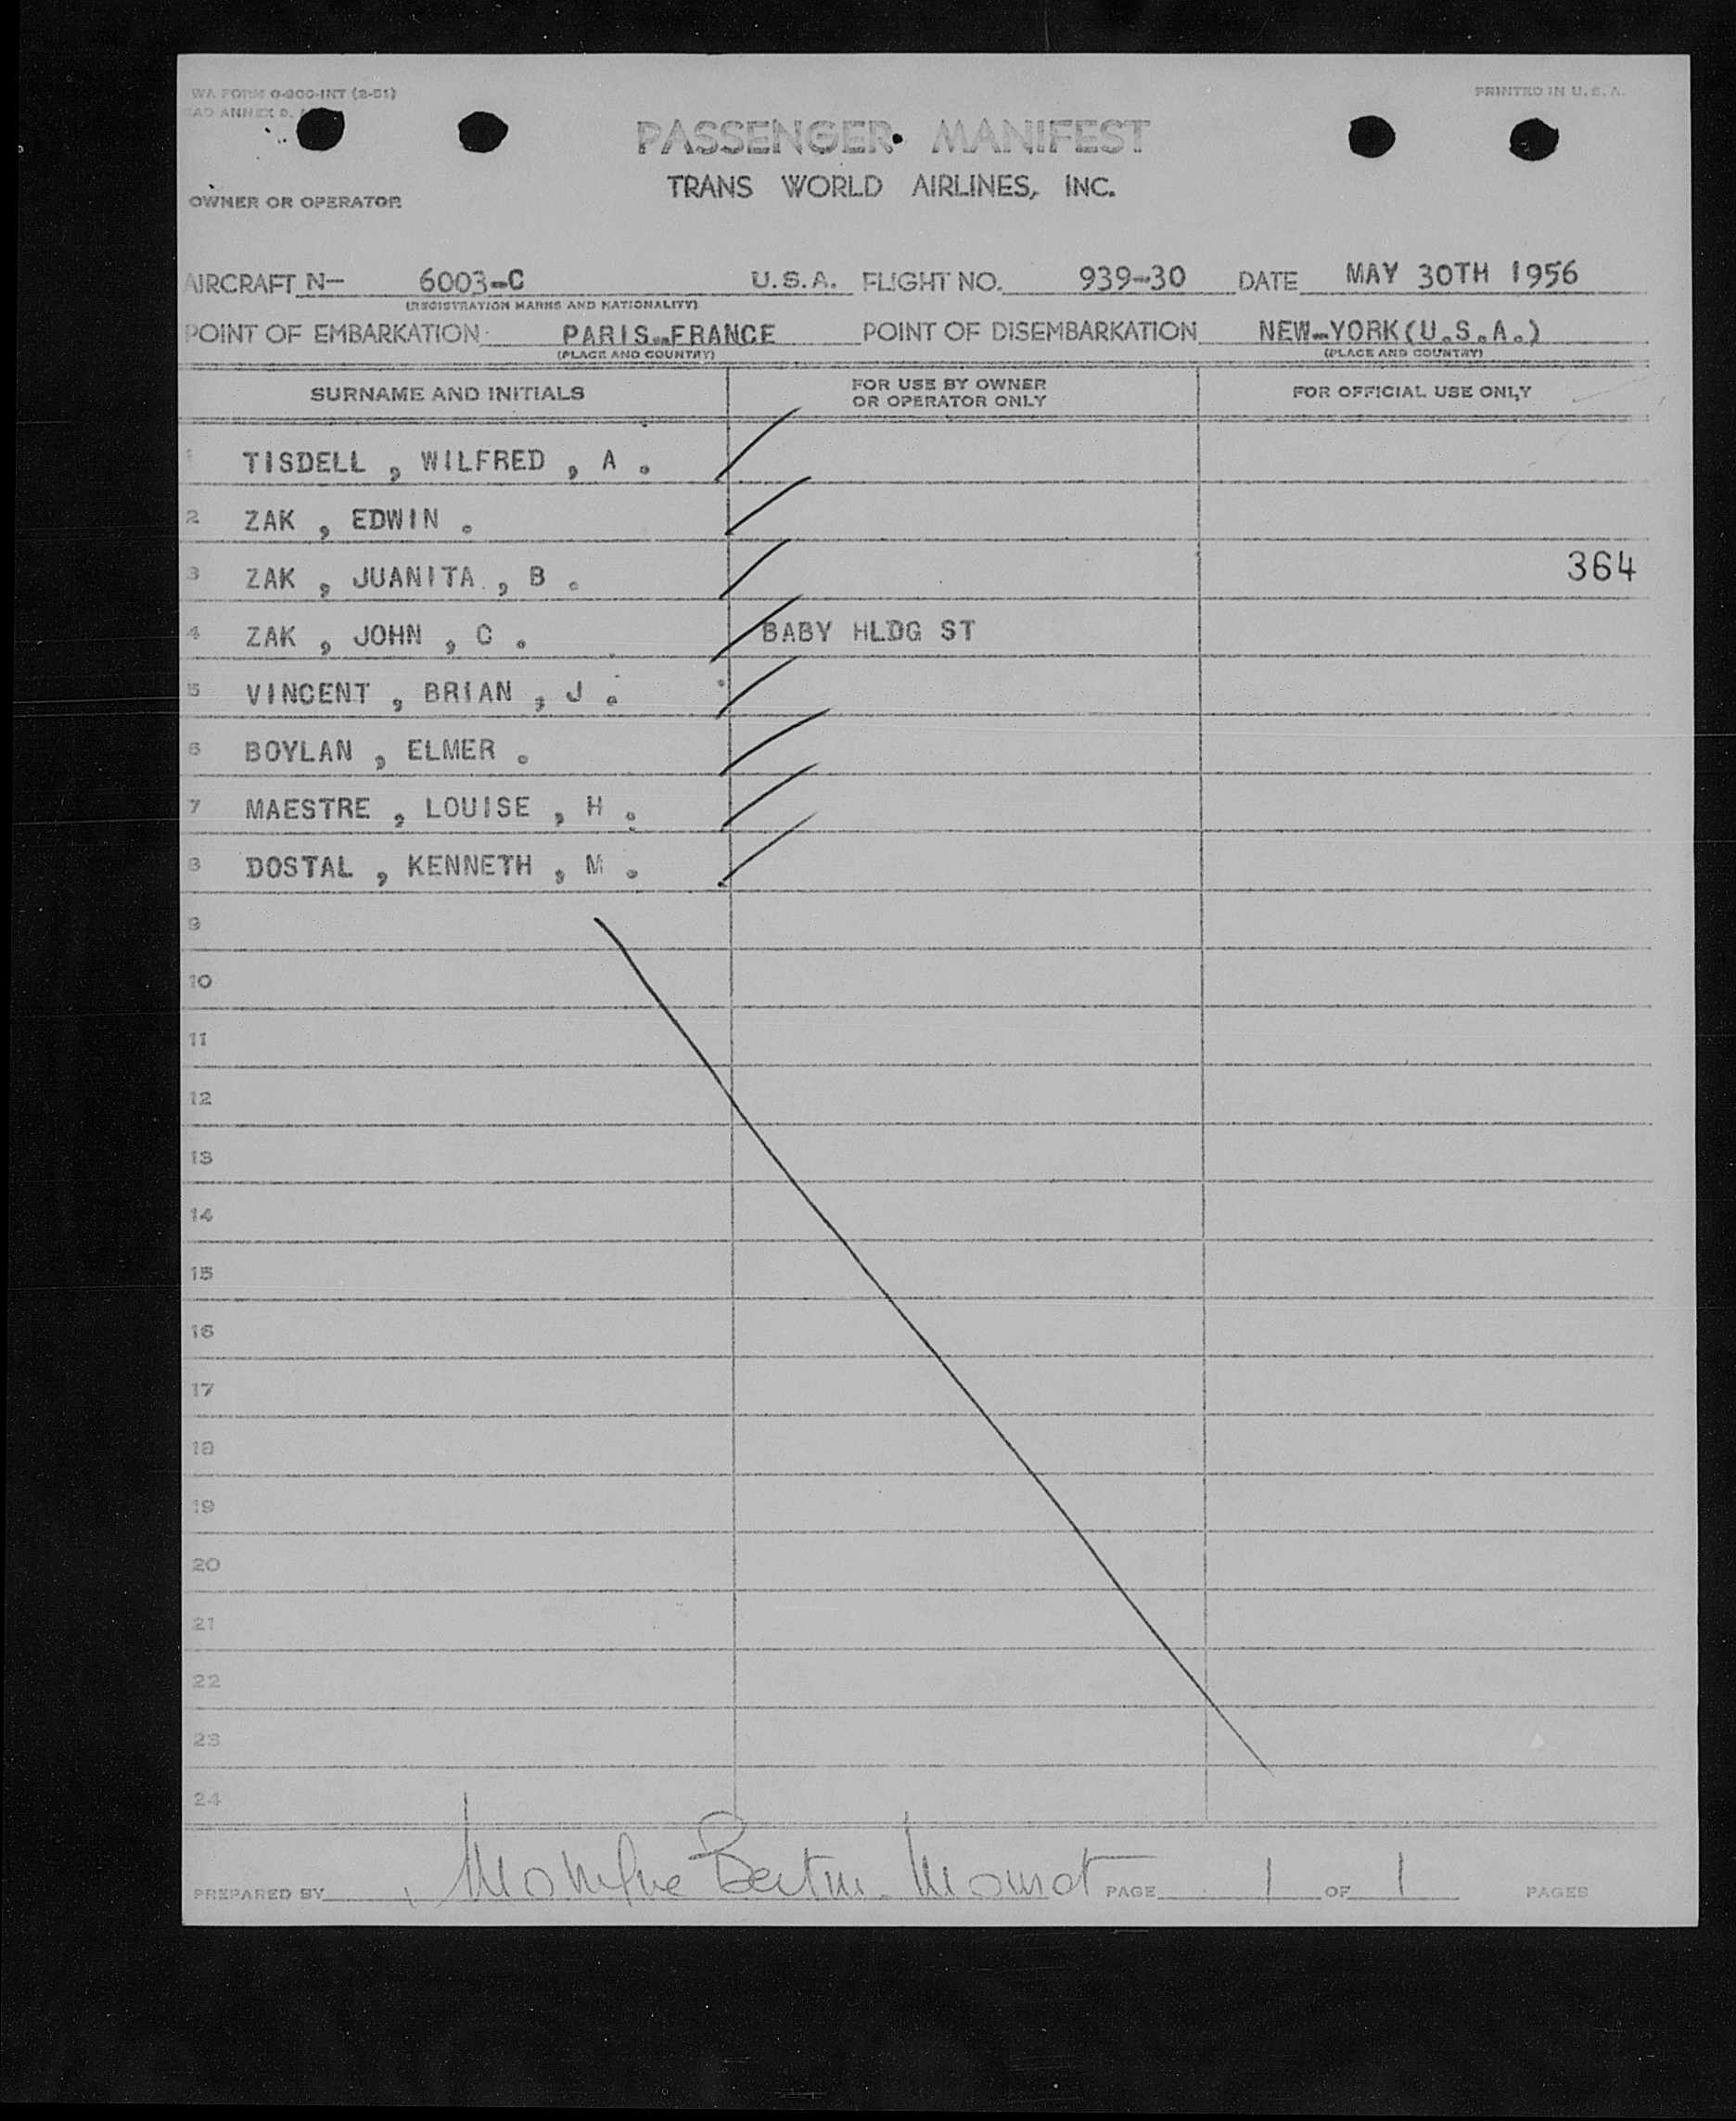 WA FORM 0-900-INT (2-51)
PRINTED IN U. S. A.
CAO ANNEX 9.
PASSENGER MANIFEST
TRANS WORLD AIRLINES, INC.
OWNER OR OPERATOR
AIRCRAFT N- 6003-C U.S.A. FLIGHT NO. 939-30 DATE MAY 30TH 1956
(REGISTRATION MARKS AND NATIONALITY)
POINT OF EMBARKATION PARIS-FRANCE POINT OF DISEMBARKATION NEW-YORK(U.S.A.)
(PLACE AND COUNTRY) (PLACE AND COUNTRY)
SURNAME AND INITIALS FOR USE BY OWNER OR OPERATOR ONLY FOR OFFICIAL USE ONLY
1 TISDELL , WILFRED , A .
2 ZAK , EDWIN .
3 ZAK , JUANITA , B . 364
4 ZAK , JOHN , C . BABY HLDG ST
5 VINCENT , BRIAN , J .
6 BOYLAN , ELMER .
7 MAESTRE , LOUISE , H .
8 DOSTAL , KENNETH , M .
9
10
11
12
13
14
15
16
17
18
19
20
21
22
23
24
PREPARED BY PAGE 1 OF 1 PAGES